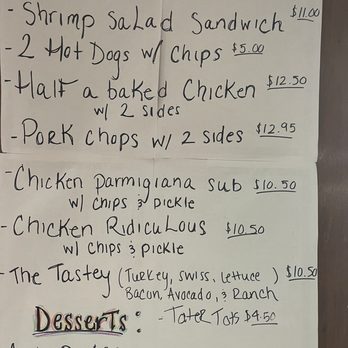 - Shrimp Salad Sandwich $11.00
- 2 Hot Dogs w/ chips $5.00
- Half a baked Chicken $12.50
w/ 2 sides
- Pork chops w/ 2 sides $12.95
- Chicken parmigiana sub $10.50
w/ chips & pickle
- Chicken Ridiculous $10.50
w/ chips & pickle
- The Tastey (Turkey, swiss, lettuce) $10.50
Bacon, Avocado, & Ranch
Desserts: - Tater Tots $4.50